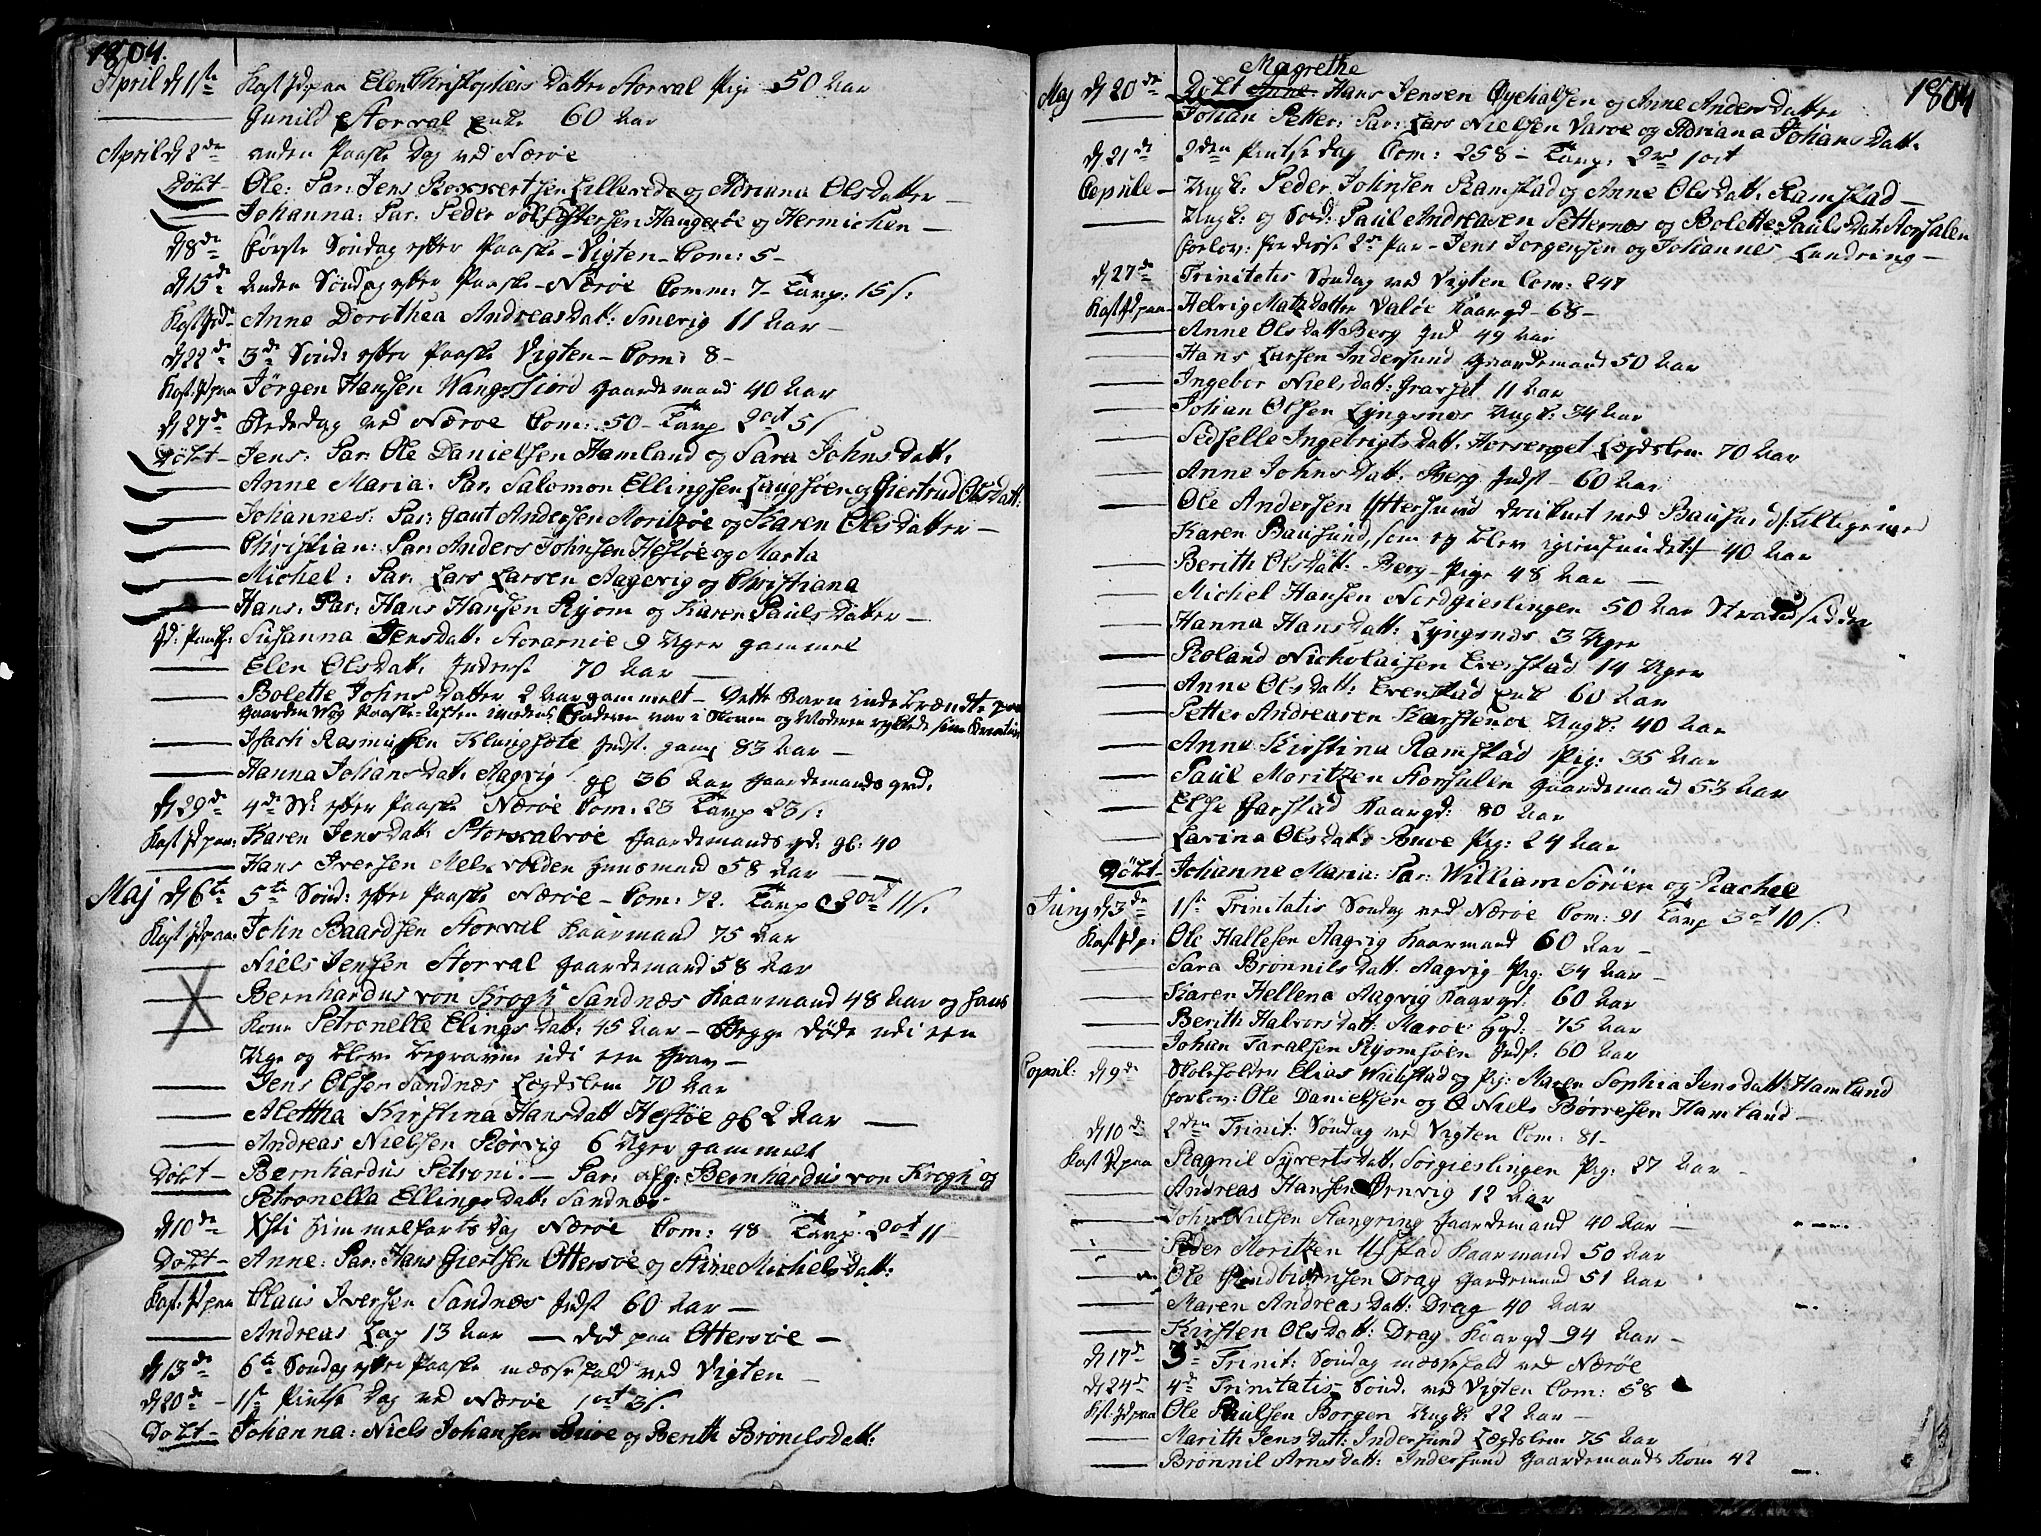 1804.
April d 1ste Kast Jd paa Elen Christophers Datter Storval Pige 50 Aar
Gunild Storval Enke 60 Aar
April d 2den anden Paaske Dag ved Nærøe
Døbt - Ole: Par: Jens Rokkertsen Lillevede og Adriana Ols Datter -
Johanna: Par: Peder Sølfestersen Haugerøe og Hermichen -
d 8de første Søndag efter Paaske - Vigten - Com: 5 -
d 15de anden Søndag efter Paaske - Nærøe Comm: 7 - Tavp: 15 s:
Kast Jd - Anne Dorothea Andreas Dat: Smevig 11 Aar -
d 22de 3de Sønd: efter Paaske Vigten - Com: 8 -
Kast: Jd paa Jørgen Hansen Wangsfiord Gaardemand 40 Aar
d 27de Bededag ved Nærøe Com: 50 - Tavp 2 ort 5 s
Døbt - Jens: Par: Ole Danielsen Hamland og Sara Johns Datt:
Anne Maria: Par: Salomon Ellingsen Langsøen og Giertrud Ols Datt:
Johannes: Par: Gaut Andersen Moritzøe og Karen Ols Datter -
Christian: Par: Anders Johnsen Hestøe og Marta
Michel: Par: Lars Larsen Aagevig og Christiana
Hans: Par: Hans Hansen Ryom og Karen Pauls Datter -
Jd: Paask: Susanna Jens Datt: 9 Uger gammel
Elen Ols Datt: Inderst 70 Aar -
Bolette Johns Datter 2 Aar gammelt - Dette Barn indebrændte paa
Gaarden Wog Paaske-Aften imedens Faderen var i Skoven og Moderen
Isach Rasmussen Klungsøte Indst. gaml 83 Aar -
Hanna Johans Datt: Aagvig gl 36 Aar Gaardemands qvd:
d 29de 4de S: efter Paaske Nærøe Com: 23 Tavp 23 s:
Kast Jd paa: Karen Jens Datt: Storkalvøe Gaardemands qd: gl: 40
Hans Iversen Melsvolden Huusmand 58 Aar -
Maj d 6te 5te Sønd: efter Paaske Nærøe - Com: 72. Tavp 3 ort 11 s.
Kast Jd paa: John Baardsen Storval Kaarmand 75 Aar
Niels Jensen Storval Gaardemand 58 Aar
Bernhardus von Krogh Sandnæs Kaarmand 48 Aar og hans
Kone Petronelle Elings Datt: 45 Aar - Begge døde udi een
Uge og bleve begravne udi een Grav -
Jens Olsen Sandnæs Lægdslem 70 Aar
Alettha Kirstina Hans Datt Hestøe gl 2 Aar -
Andreas Nielsen Rørvig 6 Uger gammelt
Døbt - Bernhardus Petroni: - Par: afg: Bernhardus von Krogh og
Petronella Ellings Datt: Sandnæs
d 10de Xsti Himmelfarts Dag Nærøe Com: 48 Tavp: 2 ort 11 -
Døbt - Anne: Par: Hans Giertsen Ottersøe og Stine Michels Datt:
Kast: Jd paa Claus Iversen Sandnæs Indst 60 Aar -
Andreas Lap 13 Aar - død paa Ottersøe -
d 13de 6te Søndag efter Paaske messefald ved Vigten -
d 20de - 1ste Pintse Dag ved Nærøe 1 ort 3 s.
Døbt - Johanna: Niels Johansen Buøe og Berith Brønils Datt:
1804
Magrethe
Maj d 20de Døbt Anne Hans Jensen Øyehalsen og Anne Anders Datter
Johan Petter: Par: Lars Nielsen Varøe og Adriana Johans Datt:
d 21de 2den Pintse dag Com: 258 - Tavp: 2rd 1 ort
Copule - Ungk: Peder Johnsen Ramstad og Anne Ols Datt: Ramstad -
Ungk: og Sold: Paul Andreasen Petternæs og Bolette Pauls Dat: Horsalen
forlov: for disse 2de Par - Jens Jørgensen og Johannes Lundring -
d 27de Trinitatis Søndag ved Vigten Com: 247
Kast Jd paa - Helvig Matz Datter Valøe Kaarqd - 68 -
Anne Ols Datt Berg Ind 49 Aar
Hans Larsen Indersund Gaardemand 50 Aar
Ingebor Niels Datt: Gravset 11 Aar
Johan Olsen Lyngsnæs Ungk: 34 Aar
Sedselle Ingebrigts Datt: Horsenget Lægdslem 70 Aar
Anne Johns Datt: Berg Indst - 60 Aar
Ole Andersen Yttersund druknet med Bausund
Karen Bausund, som ey blev igienfundet - 40 Aar
Berith Ols Datt: Berg - Pige 48 Aar -
Michel Hansen Nordgieslingen 50 Aar Strandsidder
Hanna Hans Datt: Lyngsnæs 3 Uger
Roland Nicholaisen Evenstad 14 Uger
Anne Ols Datt: Evenstad Enk 60 Aar
Petter Andreasen Karstenøe Ungk: 40 Aar
Anne Kirstina Ramstad Pig: 35 Aar
Paul Moritzen Horsalen Gaardemand 53 Aar
Else Garstad Kaarqd: 80 Aar
Lavina Ols Datt: Buøe Pig: 24 Aar
Døbt - Johanne Maria: Par: William Sørøen og Rachel
Junj d 3de 1ste Trinitatis Søndag ved Nærøe Com: 91 Tavp 3 ort 10 s.
Kast Jd p: Ole Hallesen Aagvig Kaarmand 60 Aar -
Sara Brønnils Datt. Aagvig Pig: 34 Aar -
Karen Hellena Aagvig Kaarqd: 60 Aar
Berith Halvors Datt: Marøe Hqd: - 75 Aar
Johan Taralsen Ryomsøen Indst. 60 Aar
Copul: d 9de Skoleholder Elias Wiikstad og Pig: Maren Sophia Jens Datt: Hamland
forlov: Ole Danielsen og Niels Børresen Hamland -
d 10de 2den Trinit: Søndag ved Vigten Com: 81 -
Kast Jd paa Ragnil Syverts Datt: Sørgieslingen Pig: 27 Aar -
Andreas Hansen Ørnvig 12 Aar
John Nielsen Stangring Gaardemand 40 Aar -
Peder Moritzen Ufstad Kaarmand 50 Aar
Ole Findbiørnsen Drag Gardemand 51 Aar
Maren Andreas Datt: Drag 40 Aar
Kristen Ols Datt: Drag. Kaarqd - 94 Aar -
d 17de 3de Trinit: Søndag messefald ved Nærøe
d 24de 4de Trinitatis Sønd. ved Vigten Com: 58
Kst: Jd paa Ole Paulsen Borgen Ungk: 22 Aar -
Marith Jens Datt: Indersund Lægdslem 75 Aar
Brønnil Arns Datt: Indersund Gaardemands Kone 42 -